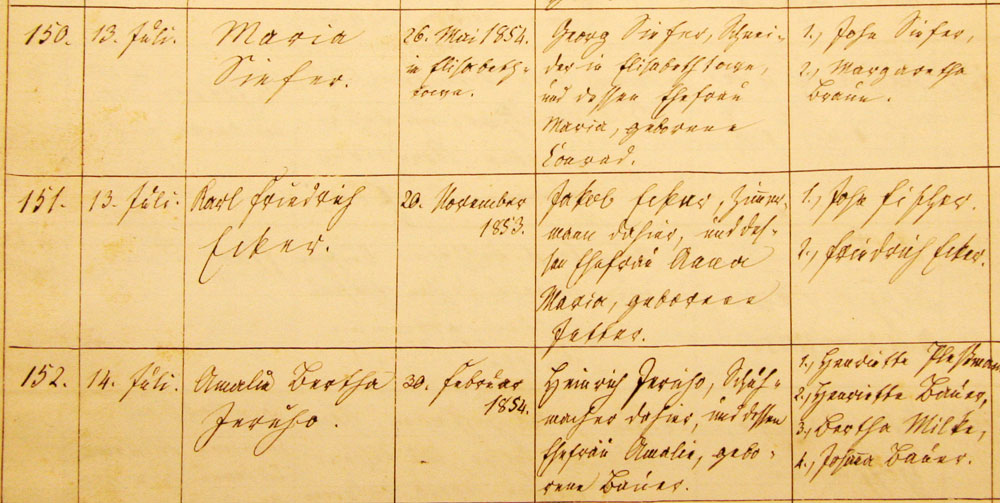 150.
13. Juli.
Maria
Siefer.
26. Mai 1854.
in Elisabeth-
town.
Georg Siefer, Schnei-
der in Elisabethtown,
und dessen Ehefrau
Maria, geborene
Conrad.
1., John Siefer,
2., Margaretha
Braun.
151.
13. Juli.
Karl Friedrich
Ecker.
20. November
1853.
Jakob Ecker, Zimmer-
mann dahier, und des-
sen Ehefrau Anna
Maria, geborene
1., John Fischer.
2., Friedrich Ecker.
152.
14. Juli.
Amalie Bertha
Jericho.
30. Februar
1854.
Heinrich Jericho, Schuh-
macher dahier, und dessen
Ehefrau Amalie, gebo-
rene Bauer.
1., Henriette
2., Henriette Bauer,
3., Bertha Milke,
4., Bauer.